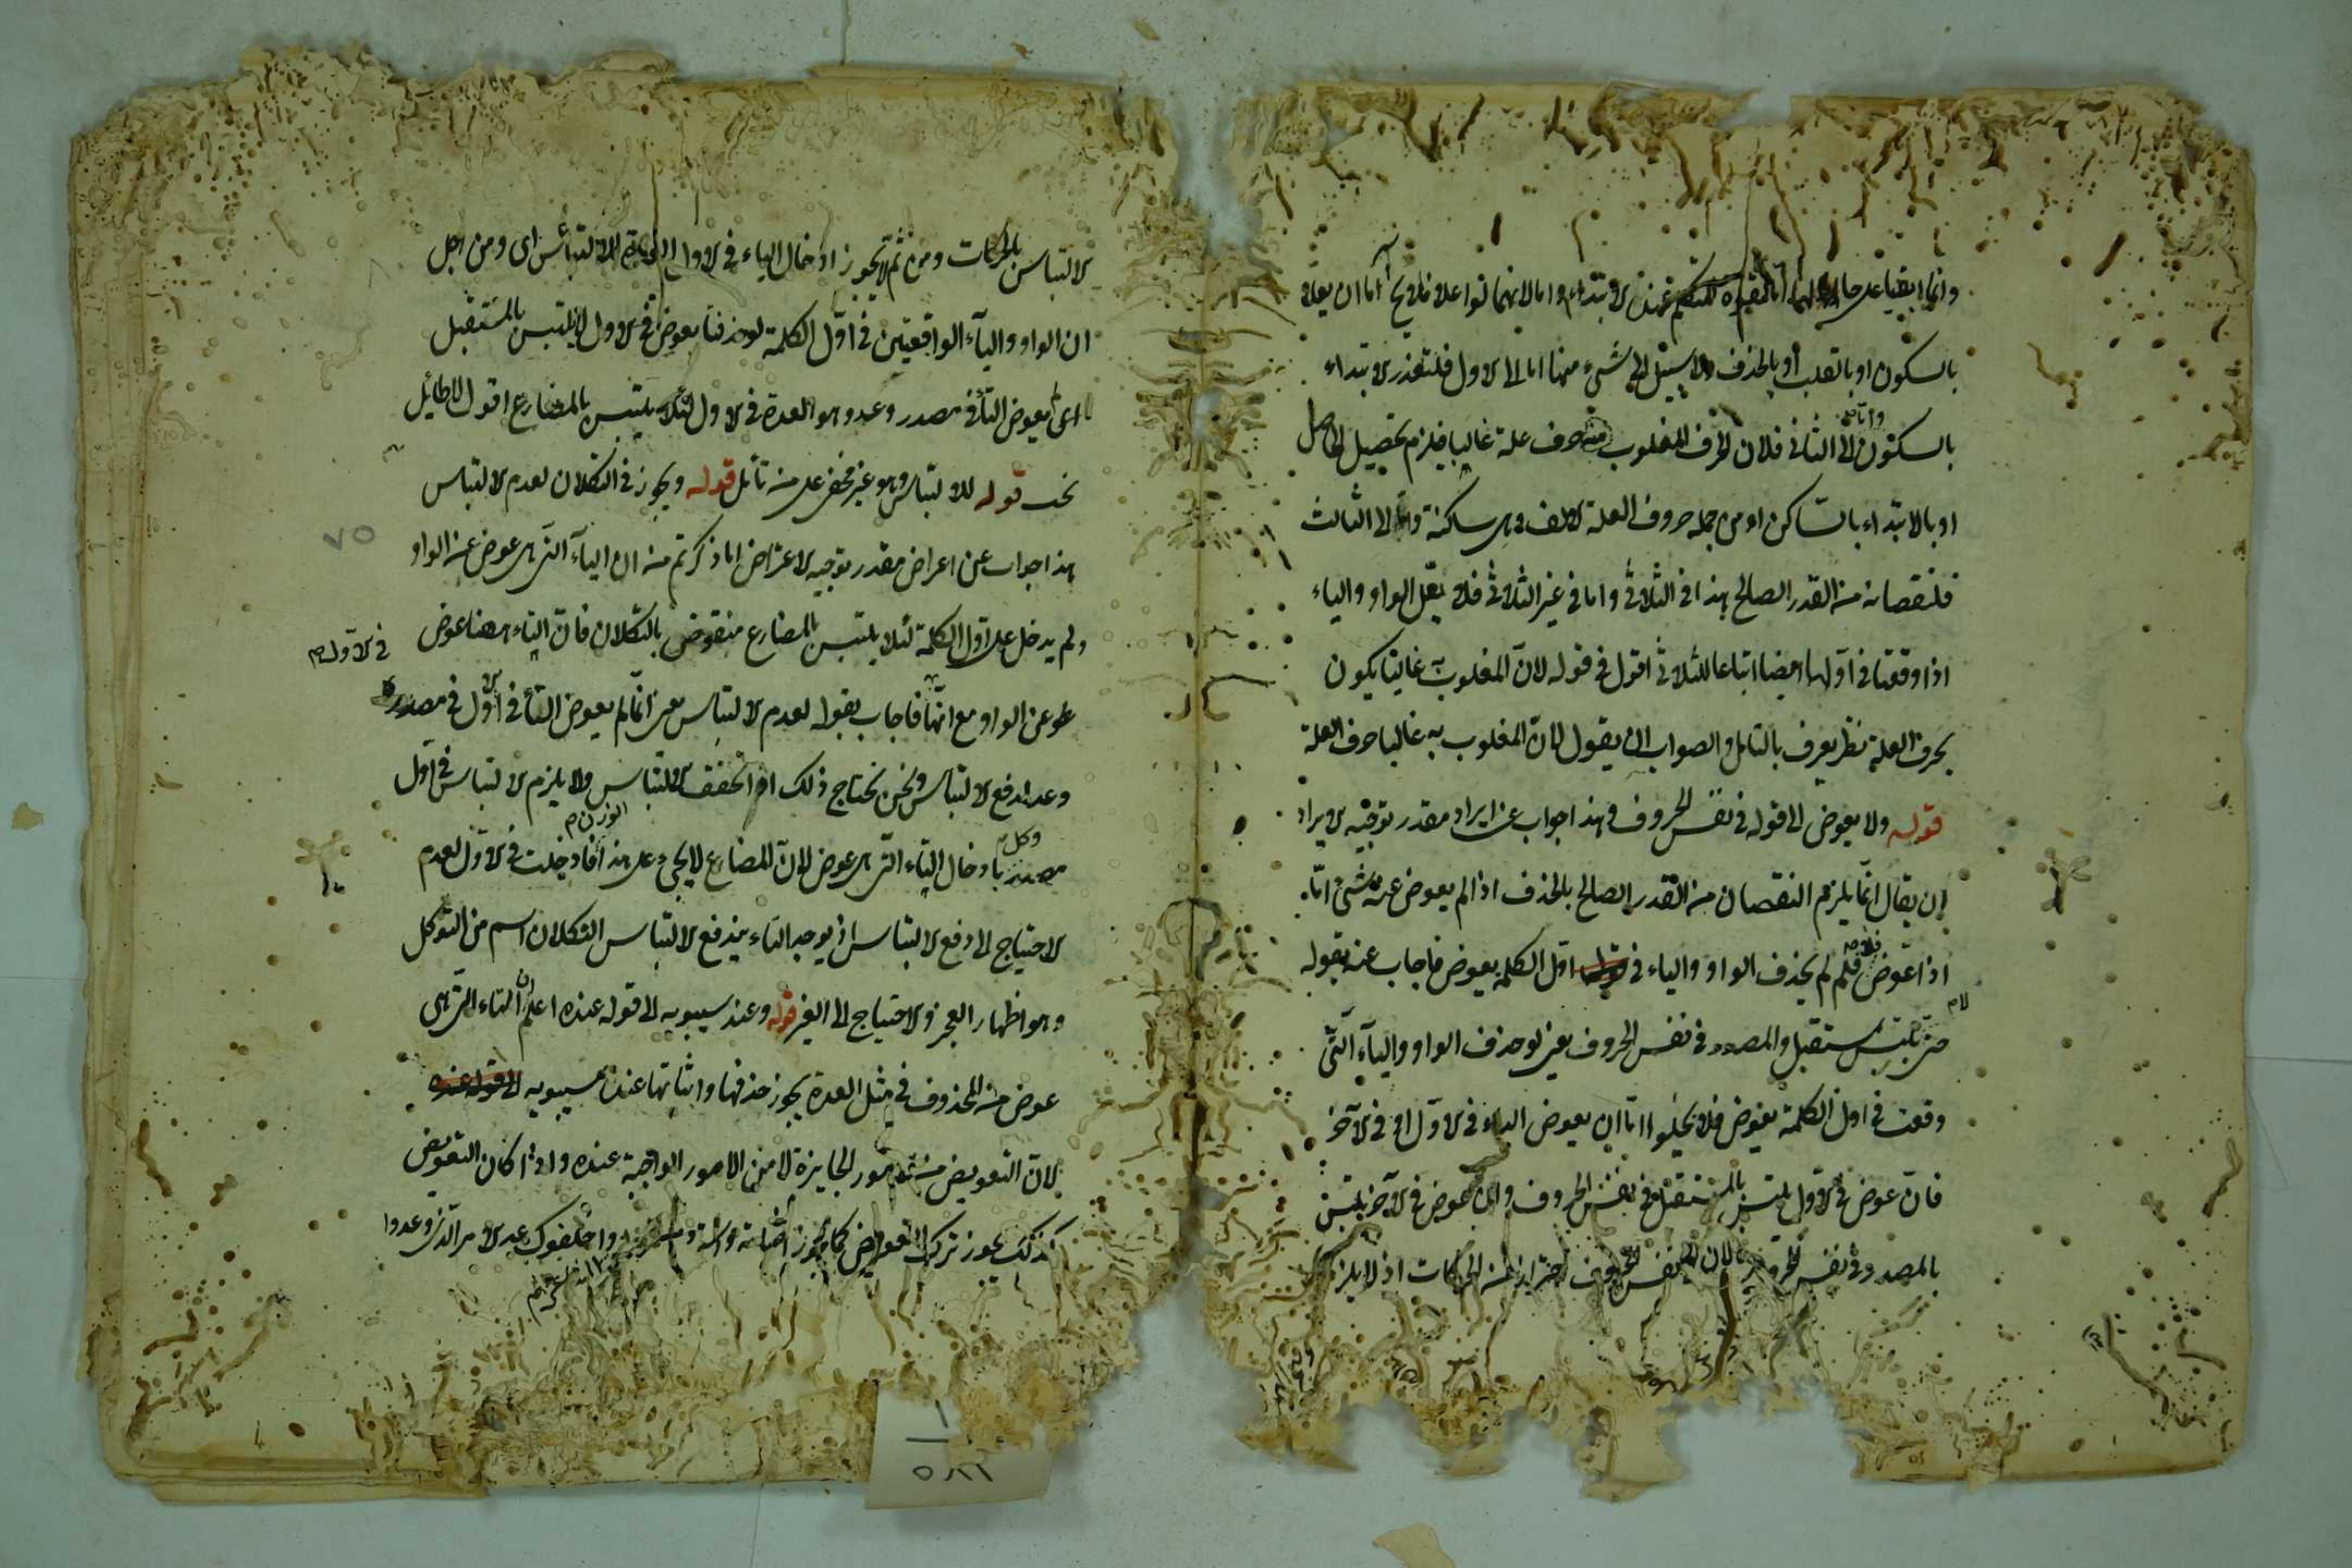 وانما ابقيا على حالهما لقوة المتكلم عند الابتداء واما لانهما لو اعلا فلا يخ اما ان يعلا
بالسكون او بالقلب أو بالحذف ولا سبيل الى شئ منها اما الى الاول فلتعذر الابتداء
بالسكون واما الى الثاني فلان الحرف المغلوب به حرف علة غالبا فيلزم تحصيل الحاصل
او بالابتداء بالساكن او من جملة حروف العلة الالف وهى ساكنة واما الى الثالث
فلنقصانه من القدر الصالح هذا في الثلاثى واما في غير الثلاثى فلا يعل الواو والياء
اذا وقعتا فى اولها ايضا اتباعا للثلاثى اقول فى قوله لان المغلوب به غالبا يكون
بحرف العلة نظر يعرف بالتامل والصواب ان يقول لان المغلوب به غالبا حرف العلة
قوله ولا يعوض الى قوله فى نفس الحروف هذا جواب عن ايراد مقدر توجيه الايراد
ان يقال انما يلزم النقصان من القدر الصالح بالحذف اذا لم يعوض عنه شئ اما
اذا عوض فلا فلم لم يحذف الواو والياء فى اول الكلمة يعوض فاجاب عنه بقوله
حتى لا يلتبس بالمستقبل والمصدر فى نفس الحروف يعنى لو حذف الواو والياء التى
وقعت فى اول الكلمة يعوض فلا يخلوا اما ان يعوض التاء فى الاول او فى الآخر
فان عوض فى الاول يلتبس بالمستقبل فى نفس الحروف وان عوض فى الآخر يلتبس
بالمصدر فى نفس الحروف لان نفس الحروف احتراز من الحركات اذ لا يلزم
الالتباس بالحركات ومن ثم لا يجوز ادخال الياء فى الاول للالتباس اى ومن اجل
ان الواو والياء الواقعيتين فى اول الكلمة لو حذفتا يعوض فى الاول لا يلتبس بالمستقبل
اى لم يعوض التاء فى مصدر وعد وهو العدة فى الاول لئلا يلتبس بالمضارع اقول لا طائل
تحت قوله للالتباس وهو غير مخفى على من تامل قوله ويجوز فى التكلان لعدم الالتباس
هذا جواب عن اعراض مقدر توجيه الاعتراض ان ما ذكرتم من ان الياء التى هى عوض عن الواو
ولم يدخل على اول الكلمة لئلا يلتبس بالمضارع منقوض بالتكلان فان التاء ههنا عوض
فى الاول
عوض عن الواو مع انها فاجاب بقوله لعدم الالتباس يعنى انما لم يعوض التاء فى اول فى مصدر
وعد لدفع الالتباس ونحن نحتاج ذلك اذا تحقق الالتباس ولا يلزم الالتباس فى اول
مصدر وكل بادخال التاء التى هى عوض لان المضارع لا يجئ على هذا الوزن فادخلت فى الاول لعدم
الاحتياج الى دفع الالتباس اذ يوجد التاء يندفع الالتباس التكلان اسم من التوكل
وهو اظهار العجز والاحتياج الى الغير قوله وعند سيبويه الى قوله عنده اعلم ان التاء التى هى
عوض من المحذوف فى مثل العدة يجوز حذفها واثباتها عند سيبويه الى قوله عنده
لان التعويض من الامور الجايزة لا من الامور الواجبة عنده واذا كان التعويض
كذلك يجوز ترك التعويض كما يجوز اثباته واخلفوك عد الامر الذى وعدوا
٧٥